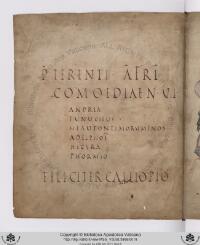 P TERENTI AFRI
COMOEDIAE N VI
ANDRIA
EUNUCHUS
HEAUTONTIMORUMENOS
ADELPHOE
HECYRA
PHORMIO
FELICITER CALLIOPIO
Copyright © Biblioteca Apostolica Vaticana